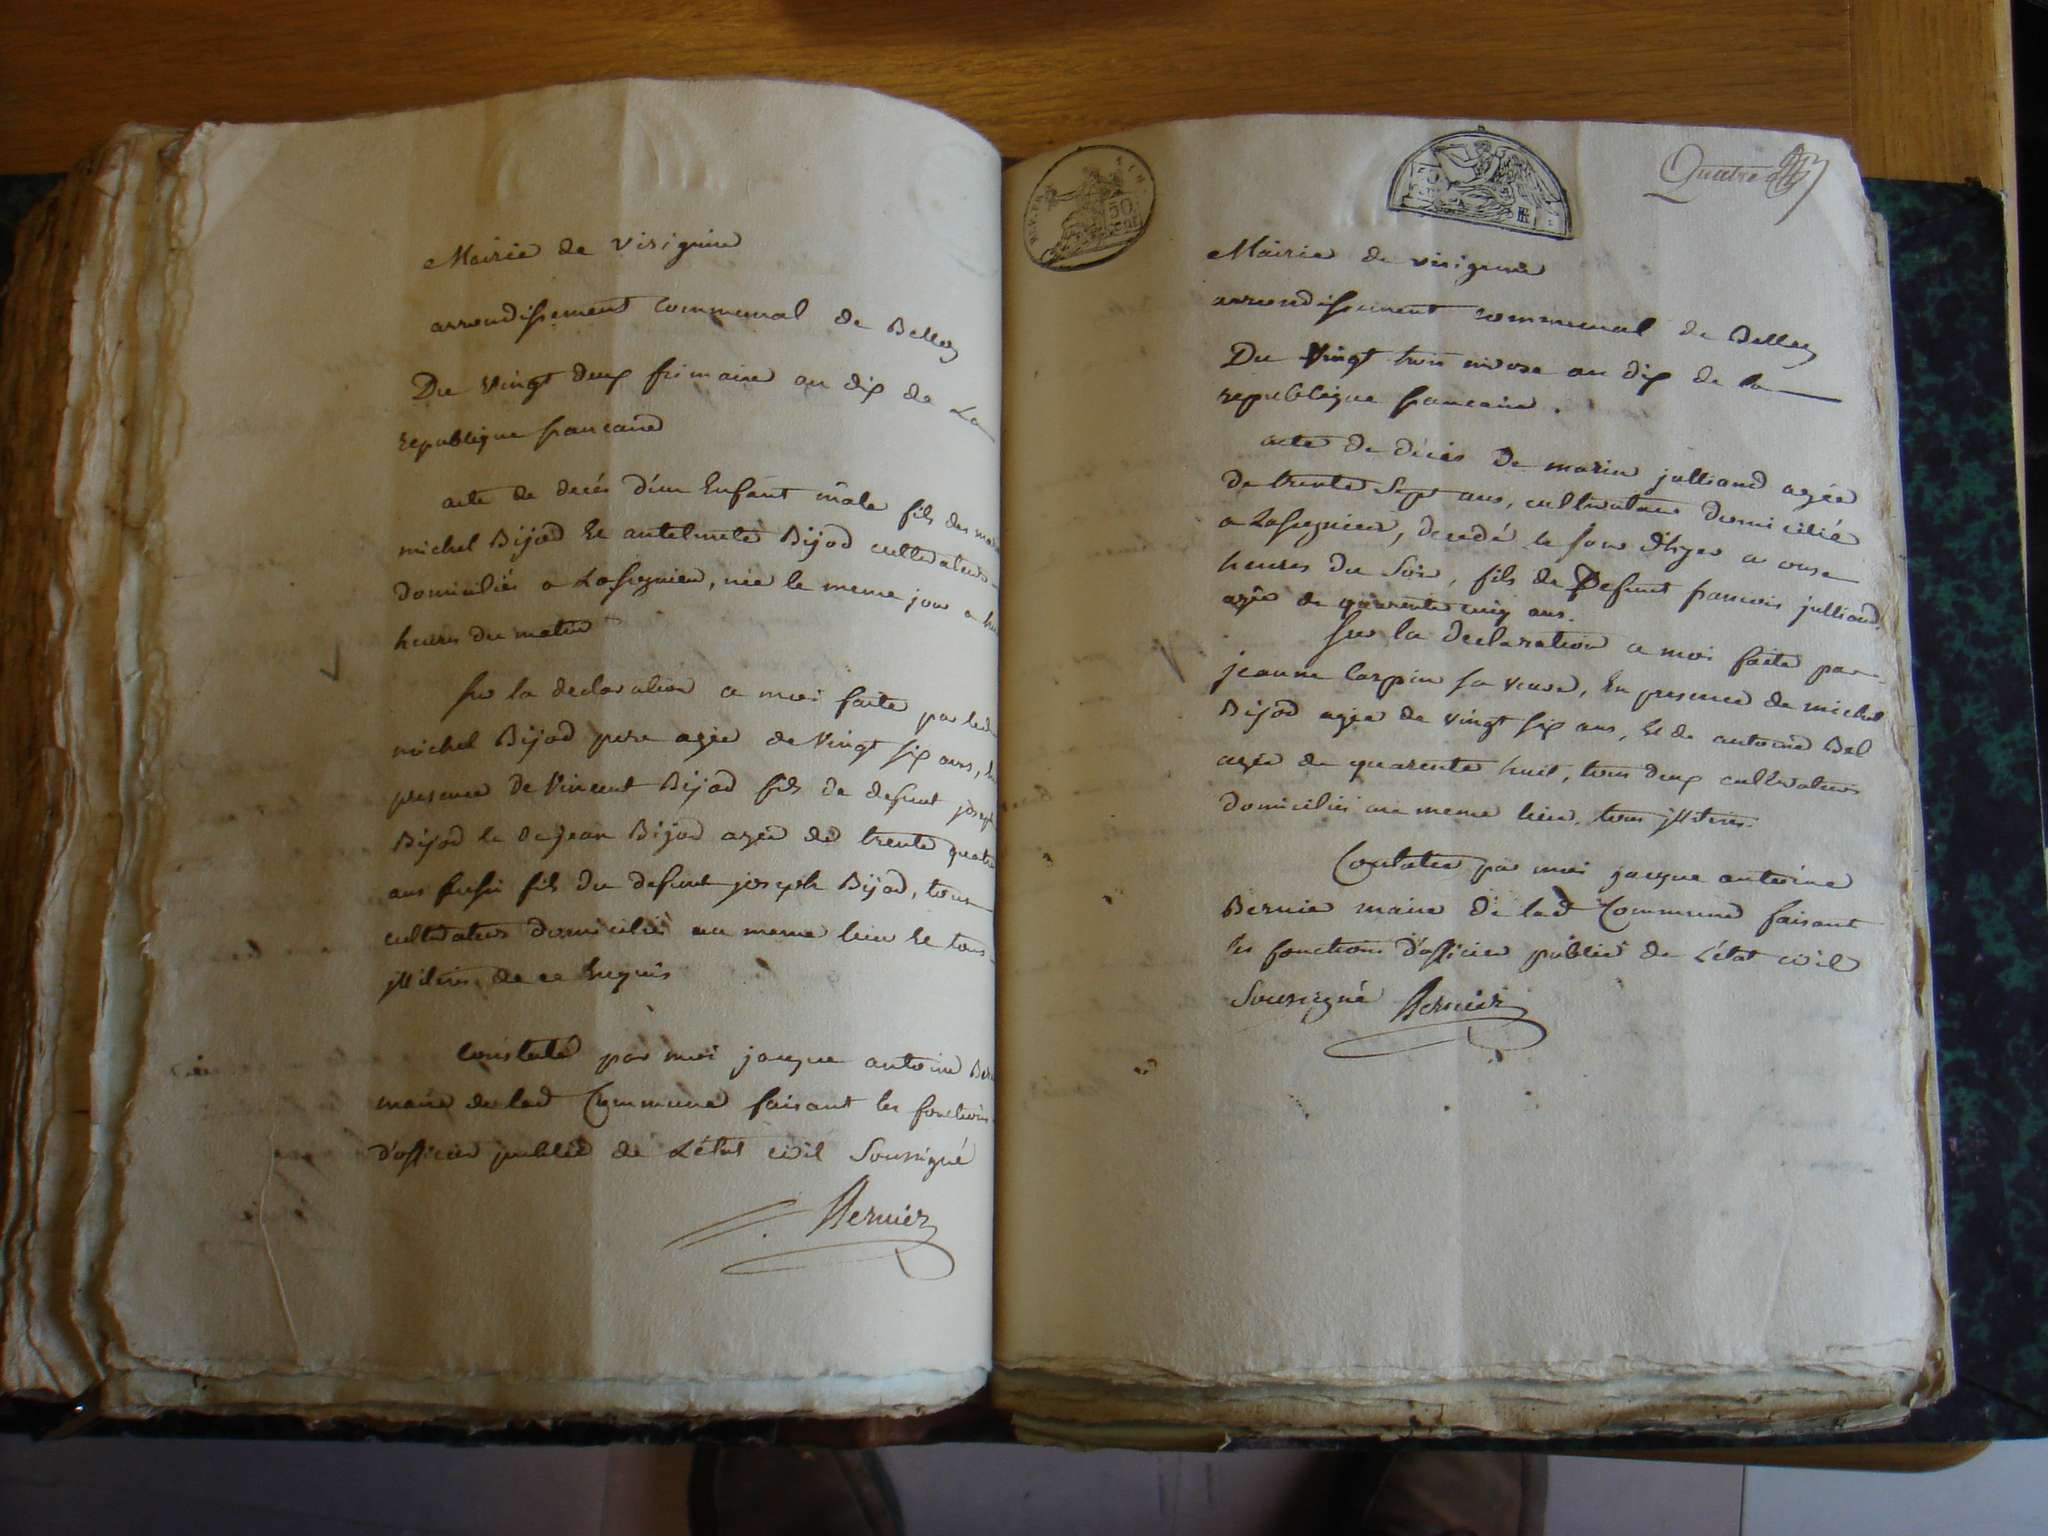 Mairie de virignin
arrondissement communal de Belley
Du Vingt deux frimaire an dix de La
republique francaise
acte de decés d'un Enfant mâle fils de
michel Bijod Et antelmete Bijod cultivateurs
domiciliés a Lassignieu, née le meme jour a
heures du matin
sur la declaration a moi faite par led
michel Bijod pere agée de Vingt six ans, En
presence de Vincent Bijod fils de defunt joseph
Bijod Et de jean Bijod agée de trente quatre
ans aussi fils du defunt joseph Bijod, tous
cultivateurs domiciliés au meme lieu Et tous
illiteres de ce Enquis
Constaté par moi jacque antoine
maire de lad Commune faisant les fonctions
d'officier public de L'état civil Soussigné
Bernier
REP. FRA.
50
CEN
Quatre
Mairie de virignin
arrondissement communal de Belley
Du Vingt trois nivose an dix de la
republique francaise.
acte de décès de marin julliand agée
de trente Sept ans, cultivateur domicilié
a Lassignieu, decedé le jour d'hyer a onze
heures du Soir, fils de Defunt francois julliand
agée de quarente cinq ans.
sur la declaration a moi faite par
jeanne Carpin sa veuve, En presence de michel
Bijod agée de vingt six ans, Et de antoine Bel
agée de quarente huit, tous deux cultivateurs
domiciliés au meme lieu, tous illiteres.
Constatée par moi jacque antoine
Bernier maire de lad Commune faisant
les fonctions d'officier public de L'état civil
Soussigné Bernier